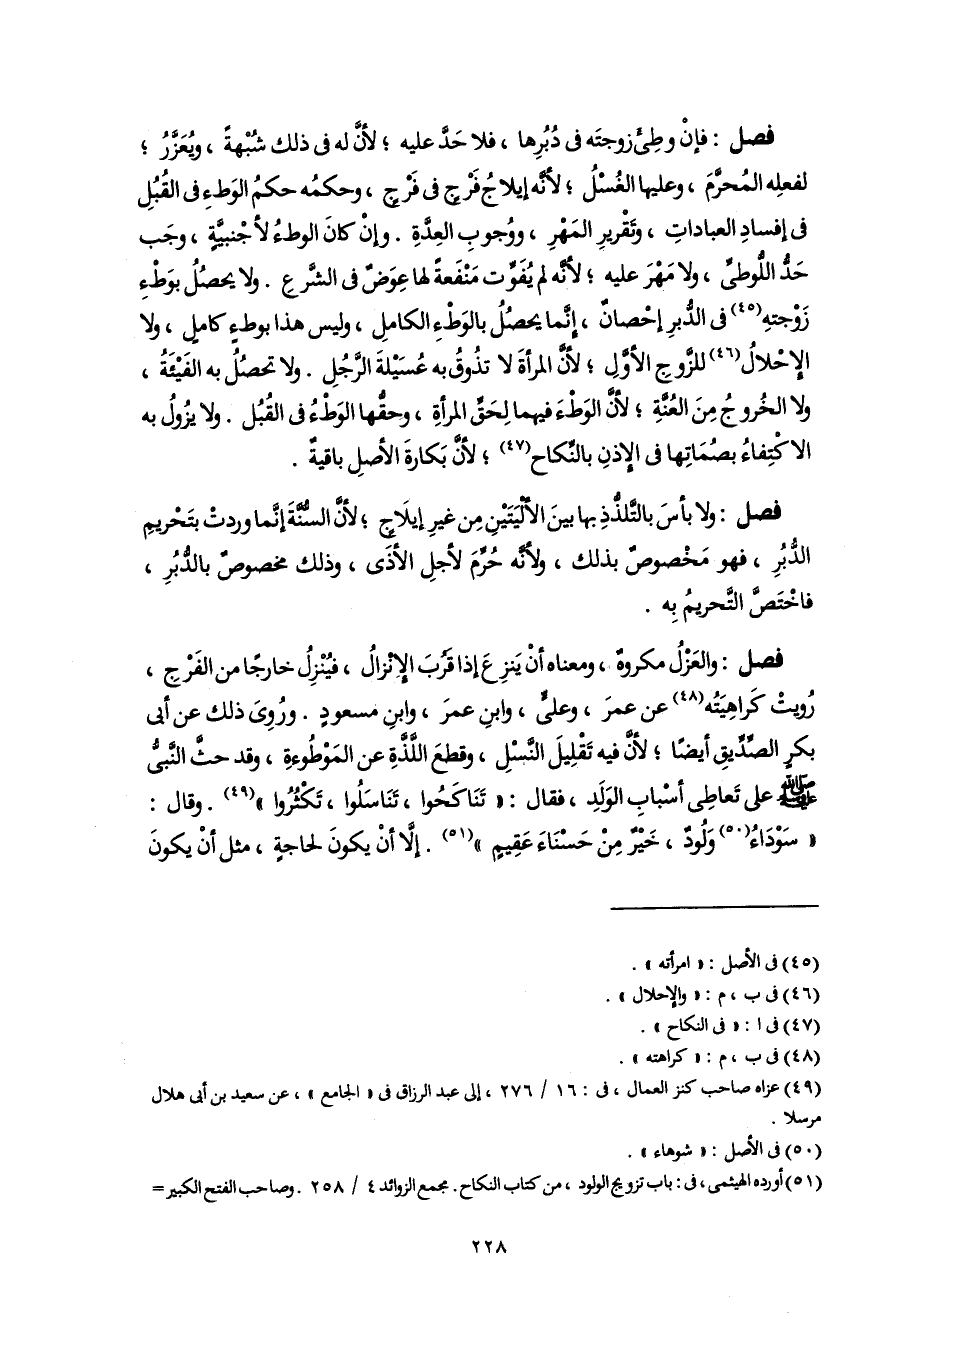 فصل : فإنْ وطِئَ زوجتَه فى دُبُرِها ، فلا حَدَّ عليه ؛ لأنَّ له فى ذلك شُبْهةً ، ويُعَزَّرُ ؛
لفعلِه المُحرَّمَ ، وعليها الغُسْلُ ؛ لأنَّه إيلاجُ فَرْجٍ فى فَرْجٍ ، وحكمُه حكمُ الوَطءِ فى القُبُلِ
فى إفسادِ العباداتِ ، وتَقْريرِ المَهْرِ ، ووُجوبِ العِدَّةِ . وإنْ كان الوطءُ لأجْنبيَّةٍ ، وجَب
حَدُّ اللُّوطىِّ ، ولا مَهْرَ عليه ؛ لأنَّه لم يُفَوِّت مَنْفَعةً لها عِوَضٌ فى الشَّرعِ . ولا يحصُلُ بوَطْءِ
زَوْجتِهِ(٤٥) فى الدُّبرِ إحْصانٌ ، إنَّما يحصُلُ بالوَطْءِ الكاملِ ، وليس هذا بوطءٍ كاملٍ ، ولا
الإحْلالُ(٤٦) للزَّوجِ الأوَّلِ ؛ لأنَّ المرأةَ لا تذُوقُ به عُسَيْلةَ الرَّجُلِ . ولا تحصُلُ به الفَيْئَةُ ،
ولا الخُروجُ مِنَ العُنَّةِ ؛ لأنَّ الوَطْءَ فيهما لِحَقِّ المرأةِ ، وحقُّها الوَطْءُ فى القُبُلِ . ولا يزُولُ به
الاكْتِفاءُ بصُمَاتِها فى الإذنِ بالنِّكاحِ(٤٧) ؛ لأنَّ بَكارةَ الأصلِ باقيةٌ .
فصل : ولا بأسَ بالتَّلذُّذِ بها بينَ الأَلْيَتَيْنِ مِن غيرِ إيلاجٍ ؛ لأنَّ السُّنَّةَ إنَّما وردتْ بتَحْريمِ
الدُّبُرِ ، فهو مَخْصوصٌ بذلك ، ولأنَّه حُرِّمَ لأجلِ الأذَى ، وذلك مخصوصٌ بالدُّبُرِ ،
فاخْتَصَّ التَّحريمُ بِه .
فصل : والعَزْلُ مكروهٌ ، ومعناه أنْ يَنزِعَ إذا قَرُبَ الإنْزالُ ، فيُنْزِلُ خارجًا من الفَرْجِ ،
رُويتْ كَراهِيَتُه(٤٨) عن عمرَ ، وعلىٍّ ، وابنِ عمرَ ، وابنِ مسعودٍ . ورُوِىَ ذلك عن أبى
بكرٍ الصِّدِّيقِ أيضًا ؛ لأنَّ فيه تَقْليلَ النَّسْلِ ، وقطعَ اللَّذَّةِ عن المَوْطُوءةِ ، وقد حثَّ النَّبىُّ
ﷺ على تَعاطِى أسْبابِ الولَدِ ، فقال : « تَنَاكَحُوا ، تَنَاسَلُوا ، تَكْثُرُوا »(٤٩) . وقال :
« سَوْدَاءُ(٥٠) وَلُودٌ ، خَيْرٌ مِنْ حَسْنَاءَ عَقِيمٍ »(٥١) . إلَّا أنْ يكونَ لحاجةٍ ، مثل أنْ يكونَ
(٤٥) فى الأصل : « امرأته » .
(٤٦) فى ب ، م : « والإحلال » .
(٤٧) فى ا : « فى النكاح » .
(٤٨) فى ب ، م : « كراهته » .
(٤٩) عزاه صاحب كنز العمال ، فى : ١٦ / ٢٧٦ ، إلى عبد الرزاق فى « الجامع » ، عن سعيد بن أبى هلال
مرسلا .
(٥٠) فى الأصل : « شوهاء » .
(٥١) أورده الهيثمى ، فى : باب تزويج الولود ، من كتاب النكاح . مجمع الزوائد ٤ / ٢٥٨ . وصاحب الفتح الكبير =
٢٢٨